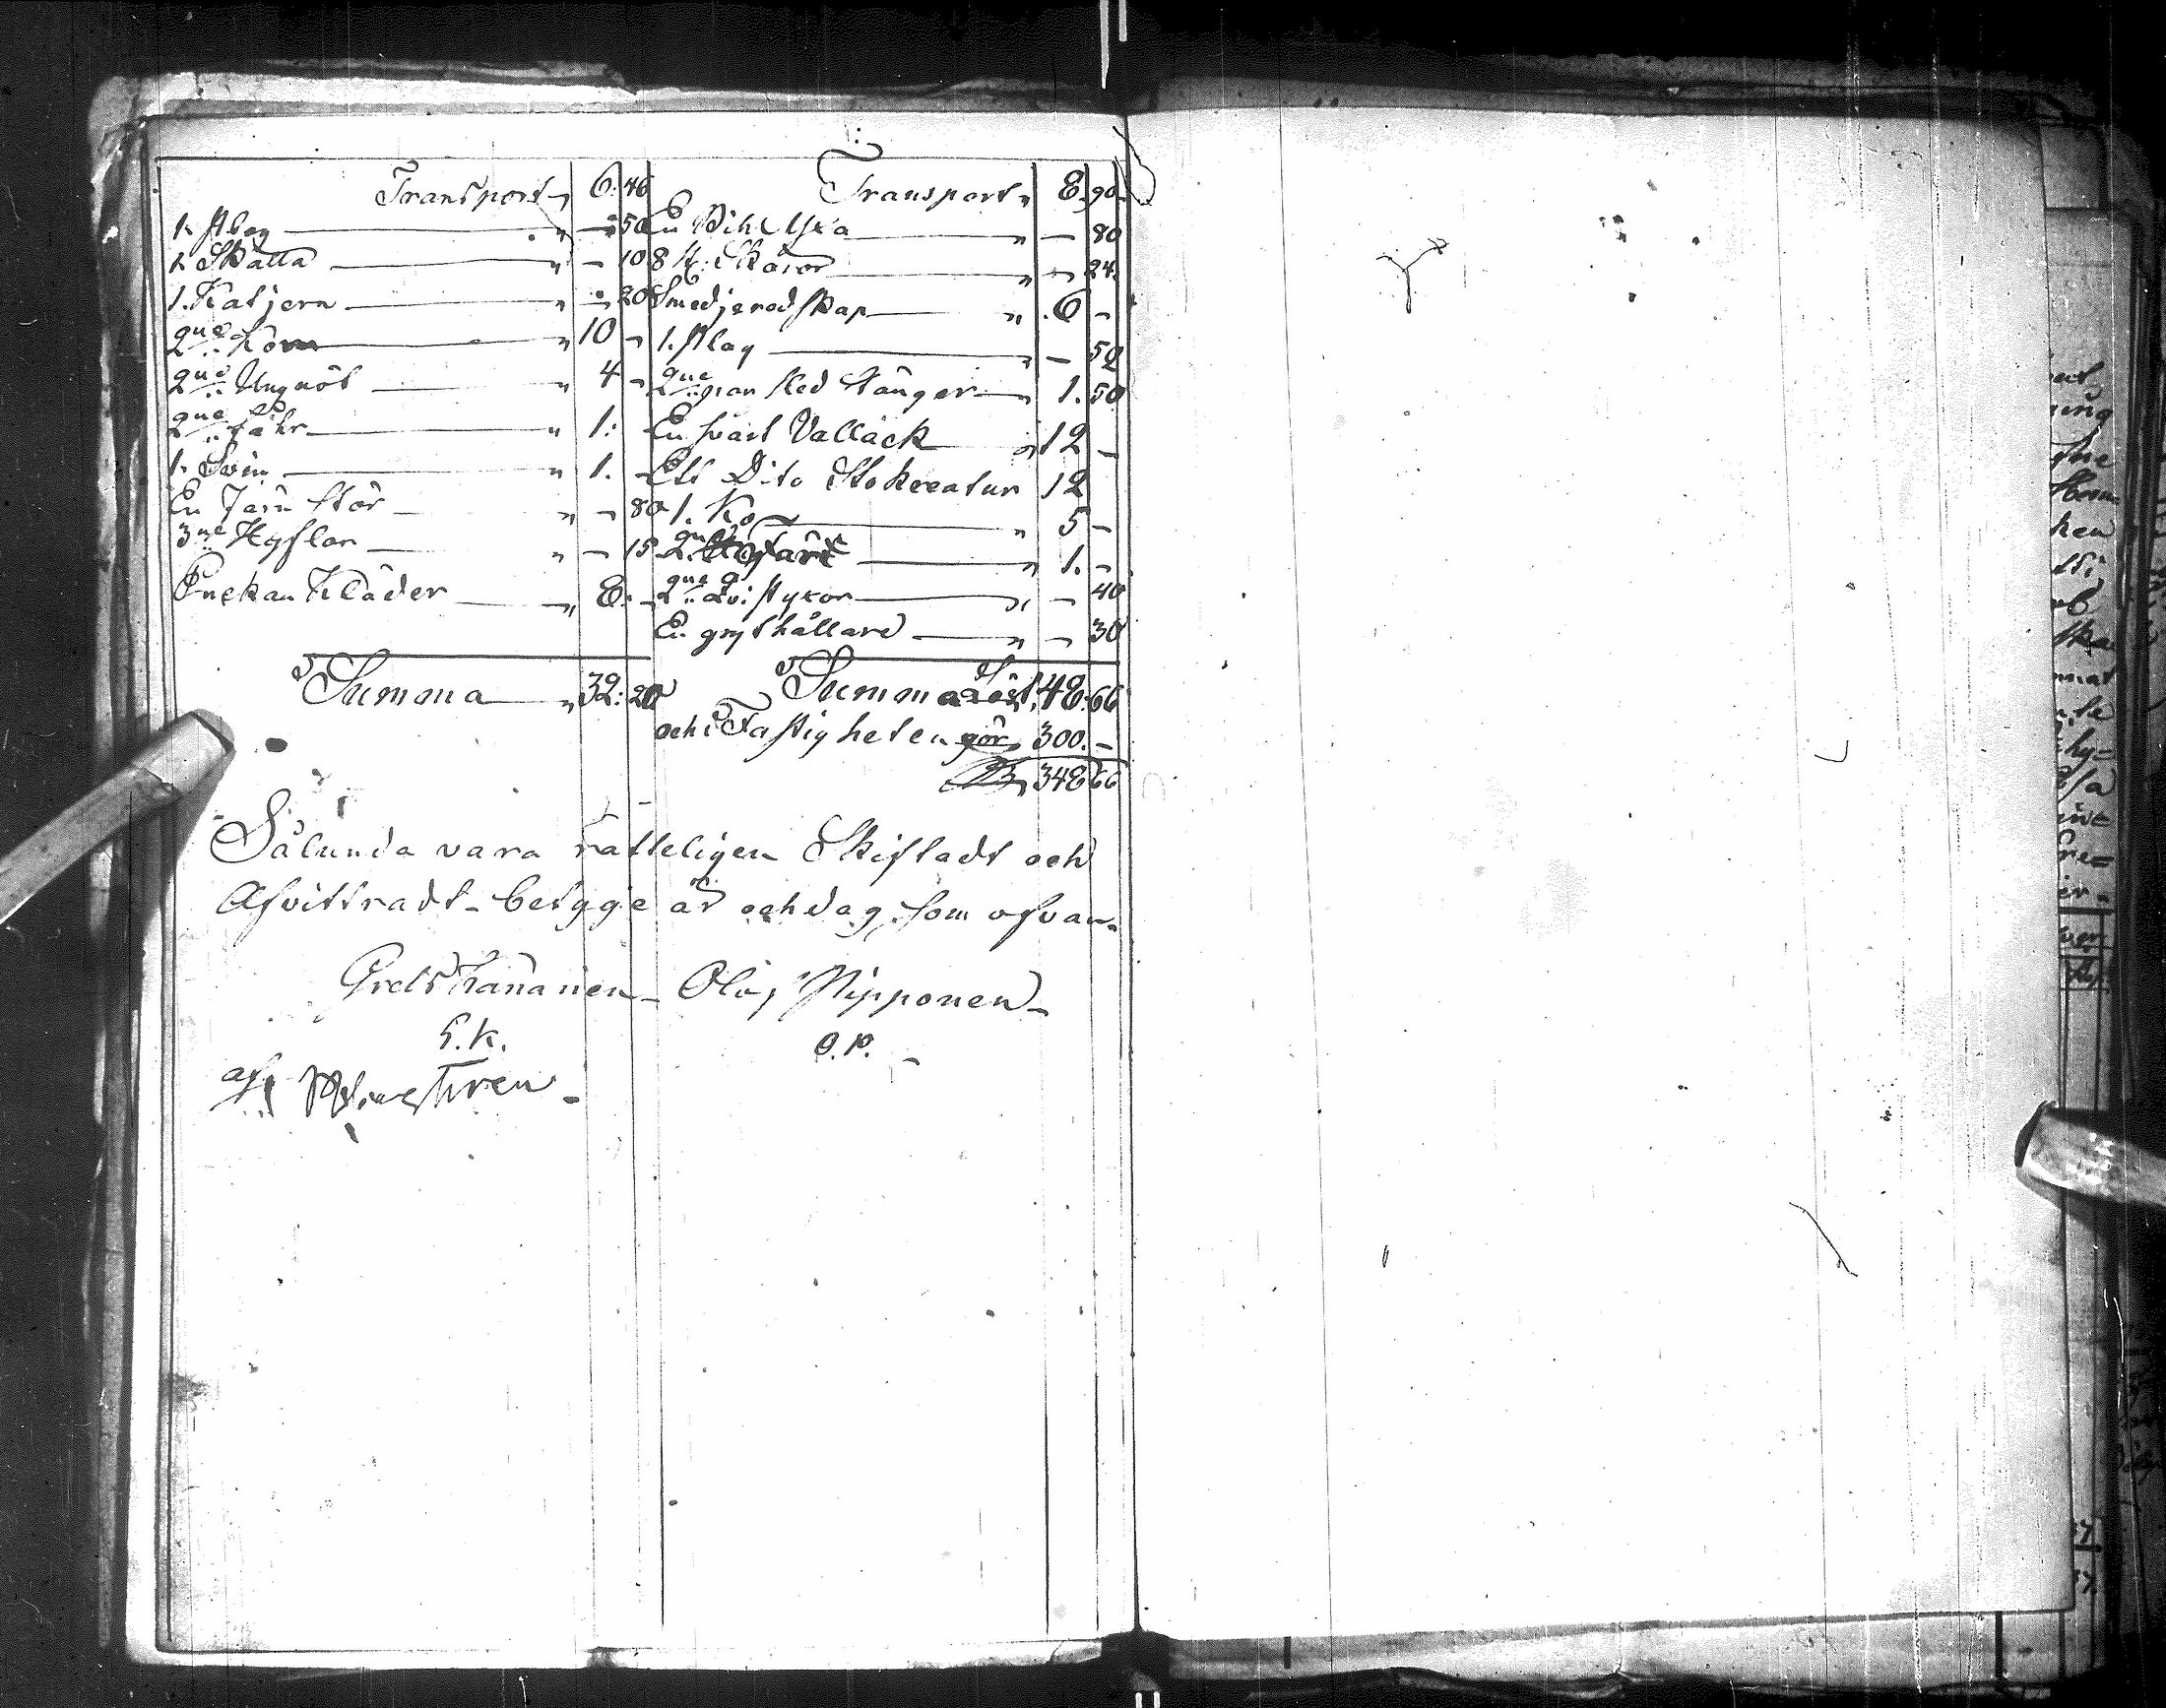 Transport 6: 46
1. Plog 50
1. Skälla 10
1. Katjern 20
2ne Kom 10 -
2ne Ungnöt 4 -
2ne Fåhr 1: -
1. Svin 1. -
En Järn Stör - 80
3ne Hyflar - 15
Enckan Kläder 8. -
Summa 32: 20
Transport 8. 90
En Bihlyxa - 80
8 st. Skäror - 24
Smedjeredskap 6 -
1. Plog - 52
2ne par Sled Stänger 1. 50
En svart Vallack 12 -
Ett Dito Stokreatur 12
1. Ko 5 -
2ne Fåhr 1. -
2ne - 40
En grythållare - 30
Summa Löst 48. 66
och i Fastigheten gör 300. -
348 66
Sålunda vara rätteligen Skiftadt och
Afvittradt betygge år och dag som ofvan.
Olof Nipponen
G. K. O. N.
af